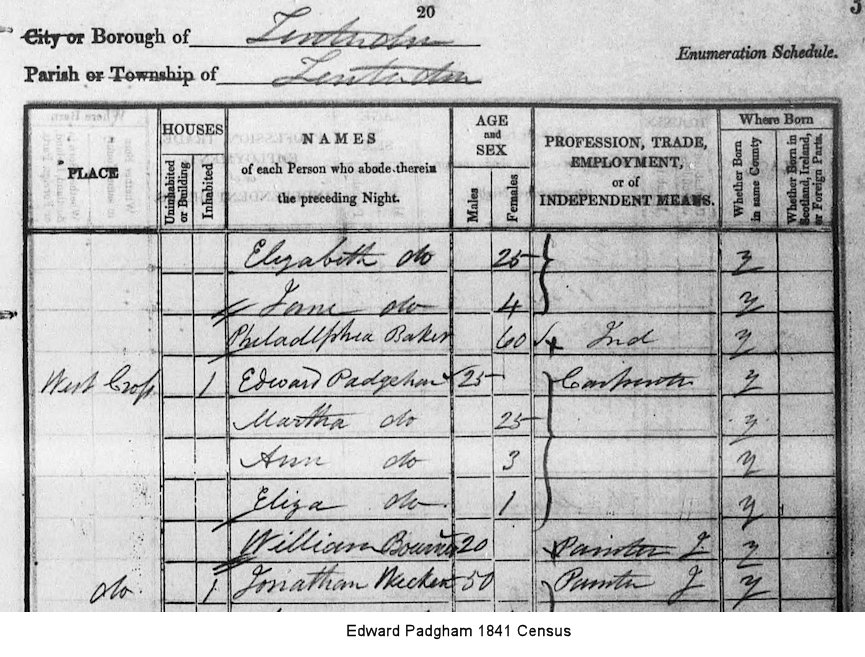 20
3
City or Borough of Tenterden
Parish or Township of Tenterden
Enumeration Schedule.
PLACE
HOUSES
Uninhabited or Building
Inhabited
NAMES
of each Person who abode therein
the preceding Night.
AGE
and
SEX
Males
Females
PROFESSION, TRADE,
EMPLOYMENT,
or of
INDEPENDENT MEANS.
Where Born
Whether Born in same County
Whether Born in Scotland, Ireland, or Foreign Parts.
Elizabeth do 25 y
Jane do 4 y
Philadelphea Baker 60 Ind y
West Cross 1 Edward Padgham 25 y
Martha do 25 y
Ann do 3 y
Eliza do 1 y
William 20 Painter J y
do 1 Jonathan 50 Painter J y
Edward Padgham 1841 Census